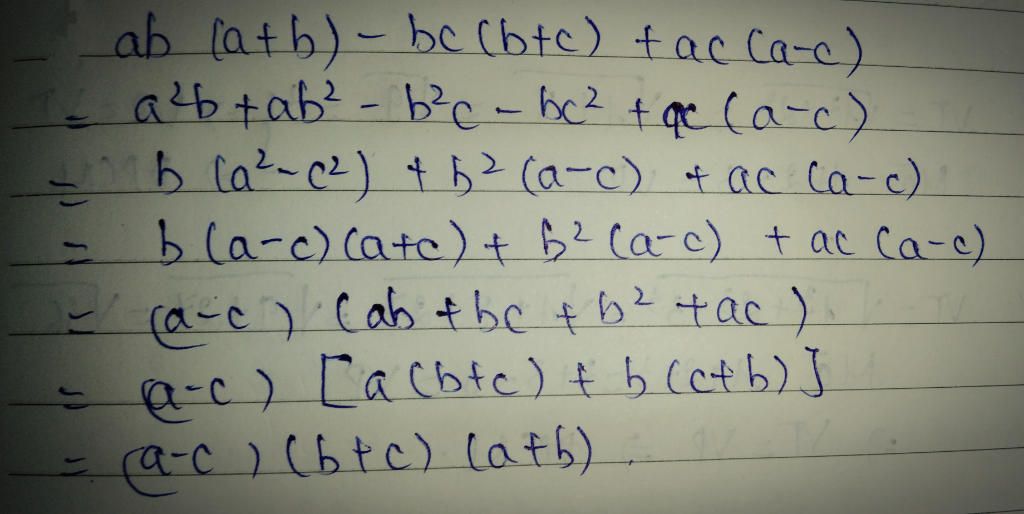 ab (a+b) - bc (b+c) + ac (a-c)
= a²b + ab² - b²c - bc² + ac (a-c)
= b (a²-c²) + b² (a-c) + ac (a-c)
= b (a-c) (a+c) + b² (a-c) + ac (a-c)
= (a-c) (ab + bc + b² + ac)
= (a-c) [a (b+c) + b (c+b)]
= (a-c) (b+c) (a+b).